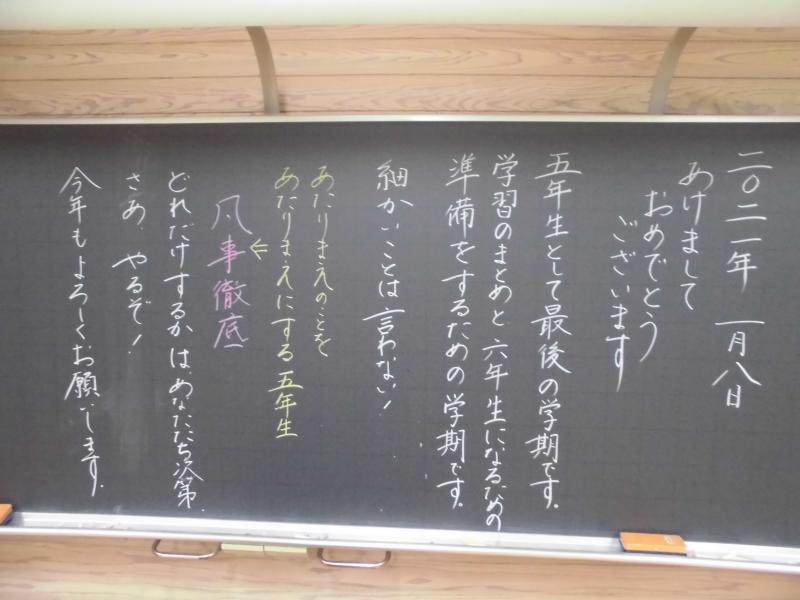 二〇二一年 一月八日
あけまして
おめでとう
ございます
五年生として最後の学期です。
学習のまとめと、六年生になるための
準備をするための学期です。
細かいことは言わない！
あたりまえのことを
あたりまえにする五年生
⇐
凡事徹底
どれだけするかは、あなたたち次第。
さあ、やるぞ！
今年もよろしくお願いします。